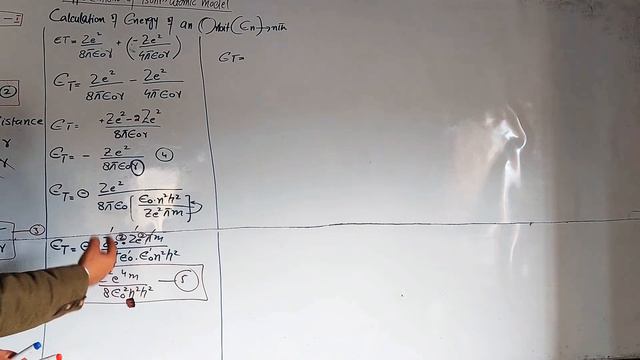 Calculation of Energy of an Orbit (En) → nth
ET = Ze²/8πε₀r + (-Ze²/4πε₀r)
ET = Ze²/8πε₀r - Ze²/4πε₀r
ET = +Ze²-2Ze²/8πε₀r
ET = - Ze²/8πε₀r ④
ET = - Ze²/8πε₀[ε₀.n²h²/Ze²πm]
e⁴m/8ε₀²n²h² — ⑤
ET =
②
istance
r
③